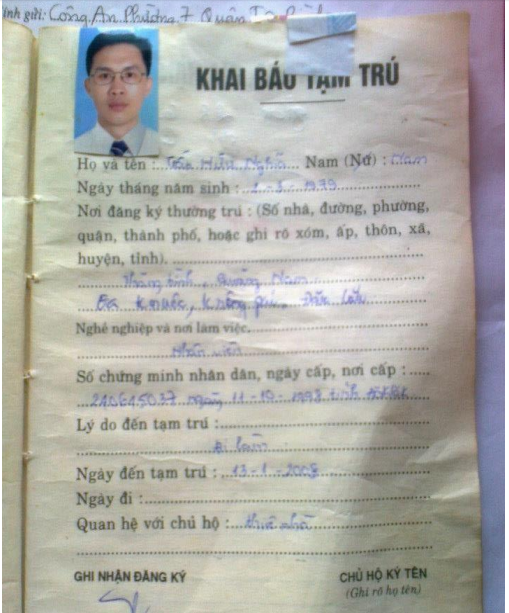 ính gửi: Công An Phường 7 Quận Tân
KHAI BÁO TẠM TRÚ
Họ và tên : Trần Hữu Nghĩa Nam (Nữ) : Nam
Ngày tháng năm sinh : 1979
Nơi đăng ký thường trú : (Số nhà, đường, phường,
quận, thành phố, hoặc ghi rõ xóm, ấp, thôn, xã,
huyện, tỉnh).
Quảng Nam
Đăk Lăk
Nghề nghiệp và nơi làm việc.
Nhân viên
Số chứng minh nhân dân, ngày cấp, nơi cấp :
240645037 ngày 11-10-1998 tỉnh
Lý do đến tạm trú :
Đi làm
Ngày đến tạm trú : 13-1-2008
Ngày đi :
Quan hệ với chủ hộ : thuê nhà
GHI NHẬN ĐĂNG KÝ
CHỦ HỘ KÝ TÊN
(Ghi rõ họ tên)